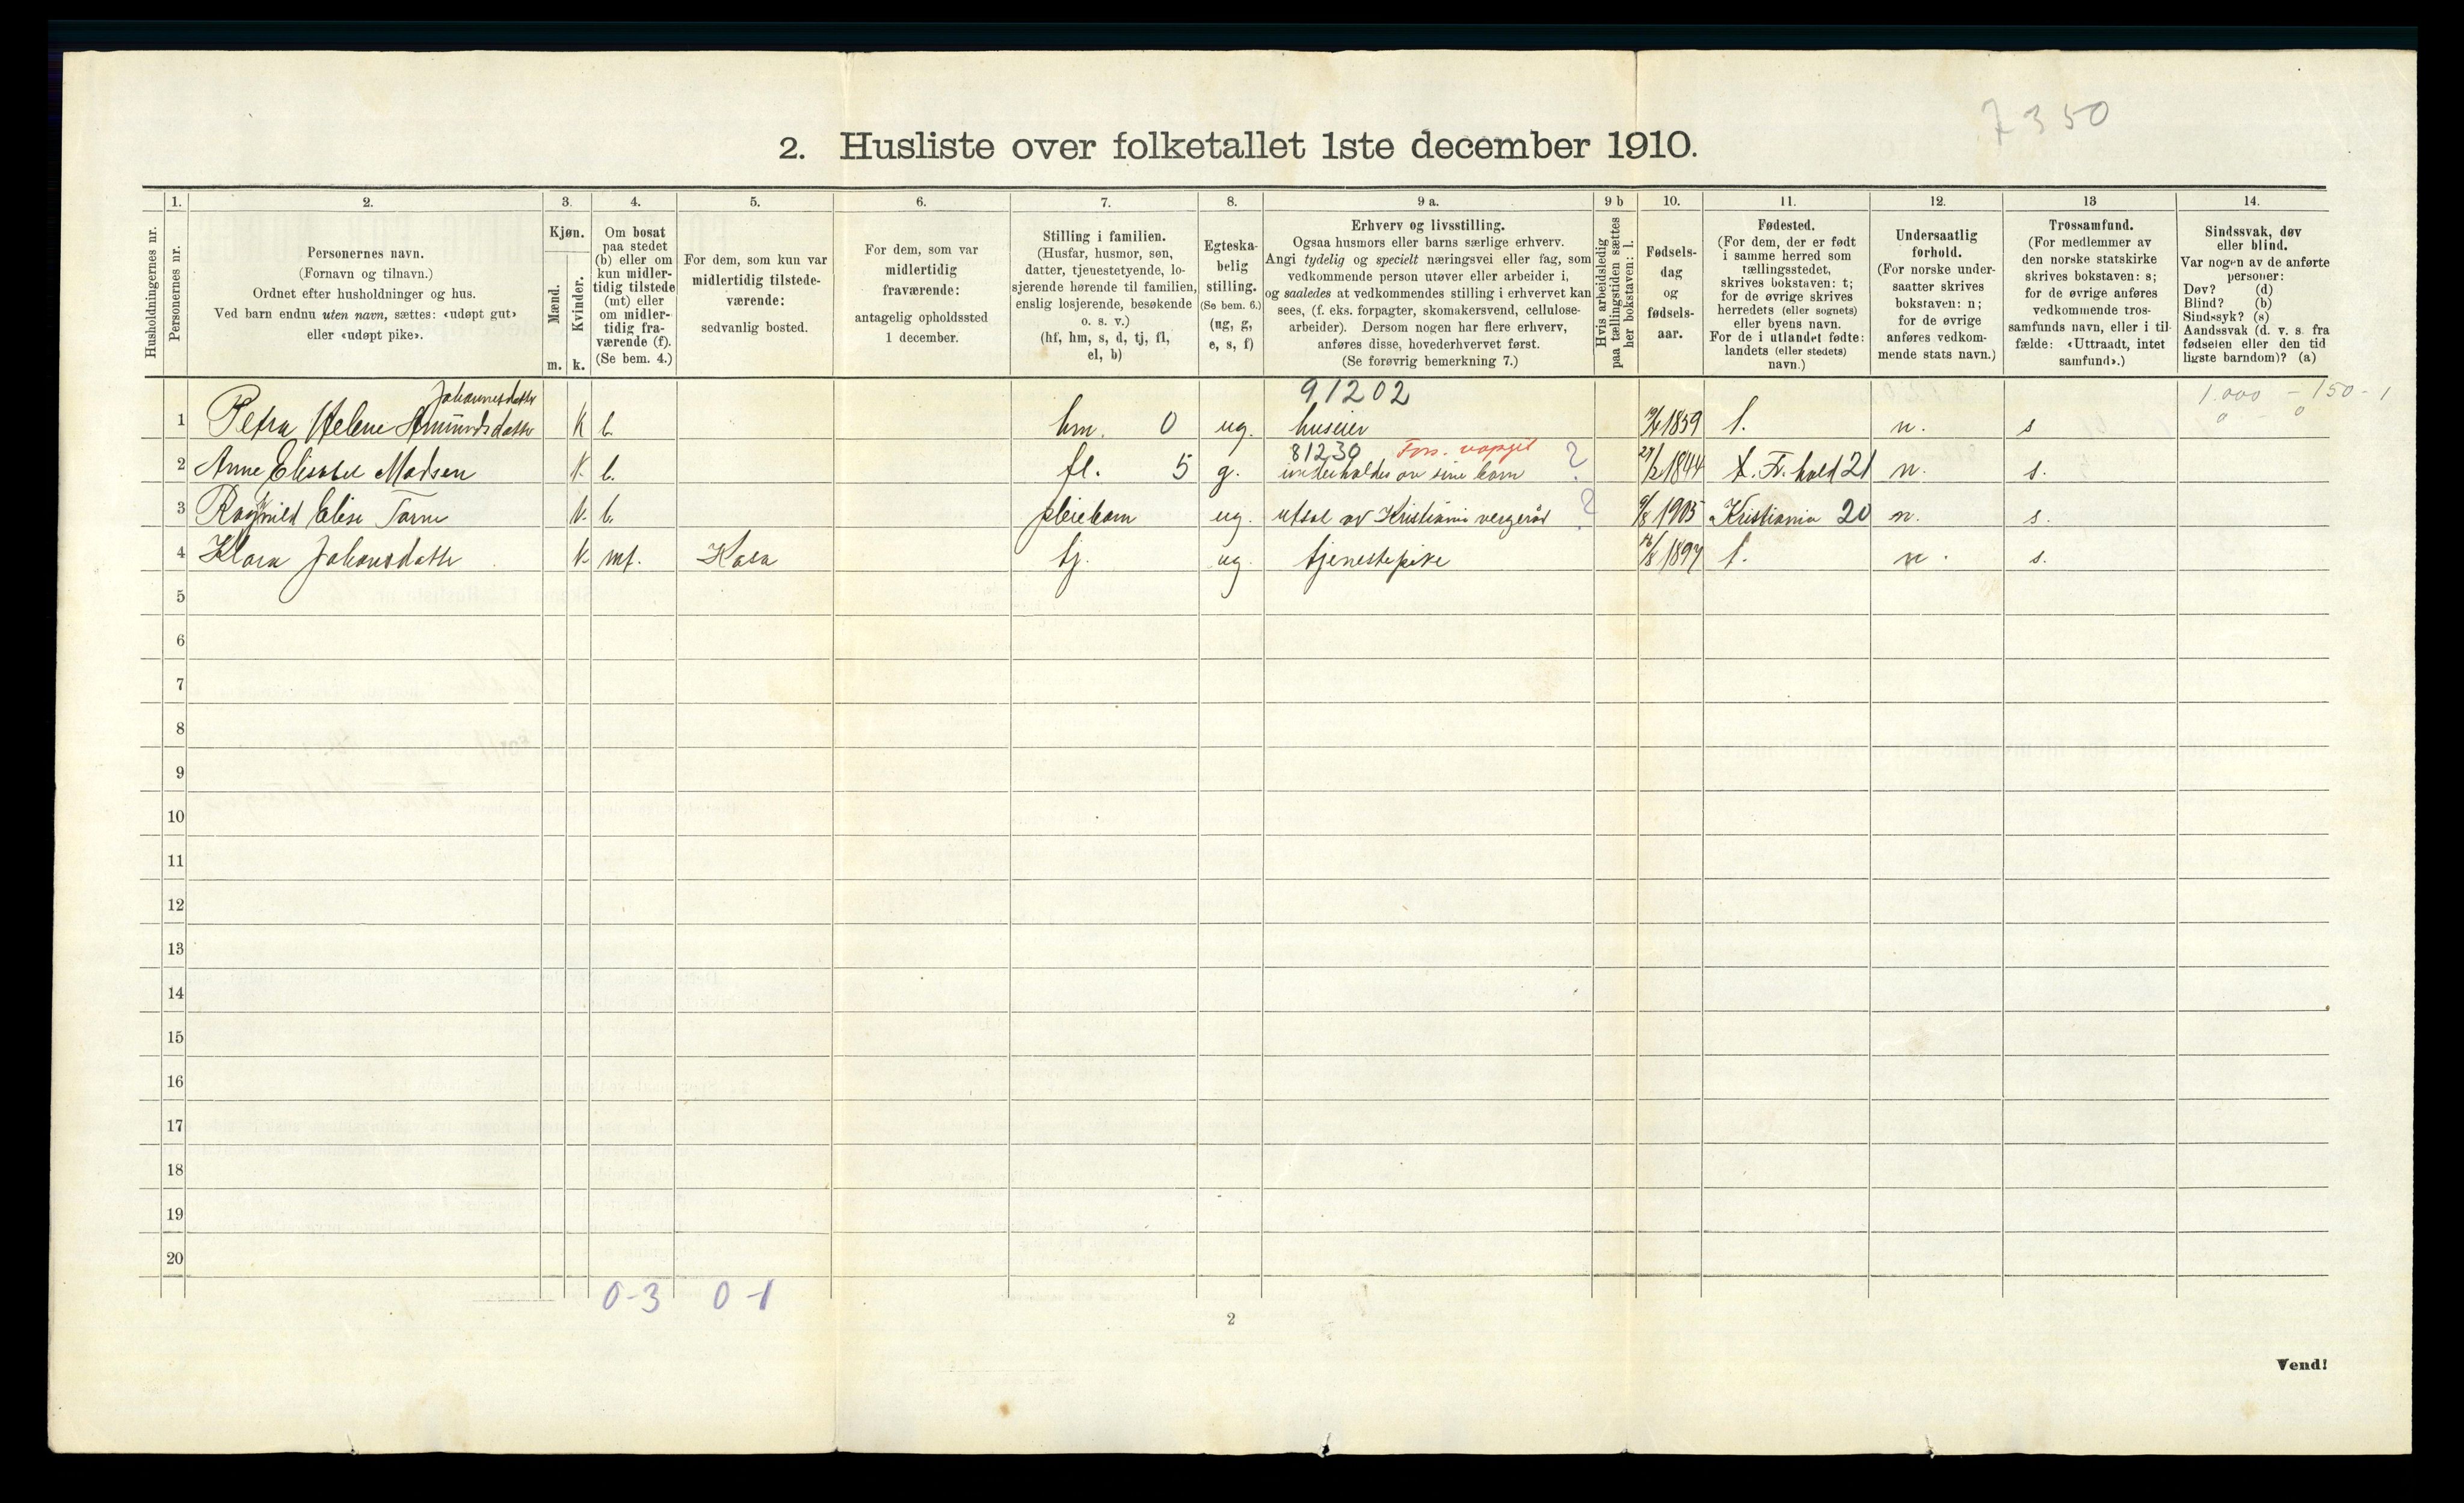 7350
2. Husliste over folketallet 1ste december 1910.
Husholdningernes nr.
1.
Personernes nr.
2.
Personernes navn.
(Fornavn og tilnavn.)
Ordnet efter husholdninger og hus.
Ved barn endnu uten navn, sættes: «udøpt gut»
eller «udøpt pike».
3.
Kjøn.
Mænd.
Kvinder.
m. k.
4.
Om bosat
paa stedet
(b) eller om
kun midler-
tidig tilstede
(mt) eller
om midler-
tidig fra-
værende (f).
(Se bem. 4.)
5.
For dem, som kun var
midlertidig tilstede-
værende:
sedvanlig bosted.
6.
For dem, som var
midlertidig
fraværende:
antagelig opholdssted
1 december.
7.
Stilling i familien.
(Husfar, husmor, søn,
datter, tjenestetyende, lo-
sjerende hørende til familien,
enslig losjerende, besøkende
o. s. v.)
(hf, hm, s, d, tj, fl,
el, b)
8.
Egteska-
belig
stilling.
(Se bem. 6.)
(ug, g,
e, s, f)
9 a.
Erhverv og livsstilling.
Ogsaa husmors eller barns særlige erhverv.
Angi tydelig og specielt næringsvei eller fag, som
vedkommende person utøver eller arbeider i,
og saaledes at vedkommendes stilling i erhvervet kan
sees, (f. eks. forpagter, skomakersvend, cellulose-
arbeider). Dersom nogen har flere erhverv,
anføres disse, hovederhvervet først.
(Se forøvrig bemerkning 7.)
9 b
Hvis arbeidsledig
paa tællingstiden sættes
her bokstaven: l.
10.
Fødsels-
dag
og
fødsels-
aar.
11.
Fødested.
(For dem, der er født
i samme herred som
tællingsstedet,
skrives bokstaven: t;
for de øvrige skrives
herredets (eller sognets)
eller byens navn.
For de i utlandet fødte:
landets (eller stedets)
navn.)
12.
Undersaatlig
forhold.
(For norske under-
saatter skrives
bokstaven: n;
for de øvrige
anføres vedkom-
mende stats navn.)
13
Trossamfund.
(For medlemmer av
den norske statskirke
skrives bokstaven: s;
for de øvrige anføres
vedkommende tros-
samfunds navn, eller i til-
fælde: «Uttraadt, intet
samfund».)
14.
Sindssvak, døv
eller blind.
Var nogen av de anførte
personer:
Døv? (d)
Blind? (b)
Sindssyk? (s)
Aandssvak (d. v. s. fra
fødselen eller den tid
ligste barndom)? (a)
Johannesdatter 91202 1.000 - 150 - 1
1 Petra Helene K b. hm. 0 ug. huseier 1859 t. n. s 0 - 0
81230
2 Anne Elisabet Madsen K. b. fl. 5 g. underholdes av sine barn ? 1844 hold 21 n. s.
3 Ragnhild Elise K. b. pleiebarn ug. utsat av Kristiania vergeråd ? 1905 Kristiania 20 n. s.
4 Klara Johansdatter K. mt. Kasa tj. ug. tjenestepike 1897 t. n. s.
5
6
7
8
9
10
11
12
13
14
15
16
17
18
19
20
0-3 0-1
2
Vend!